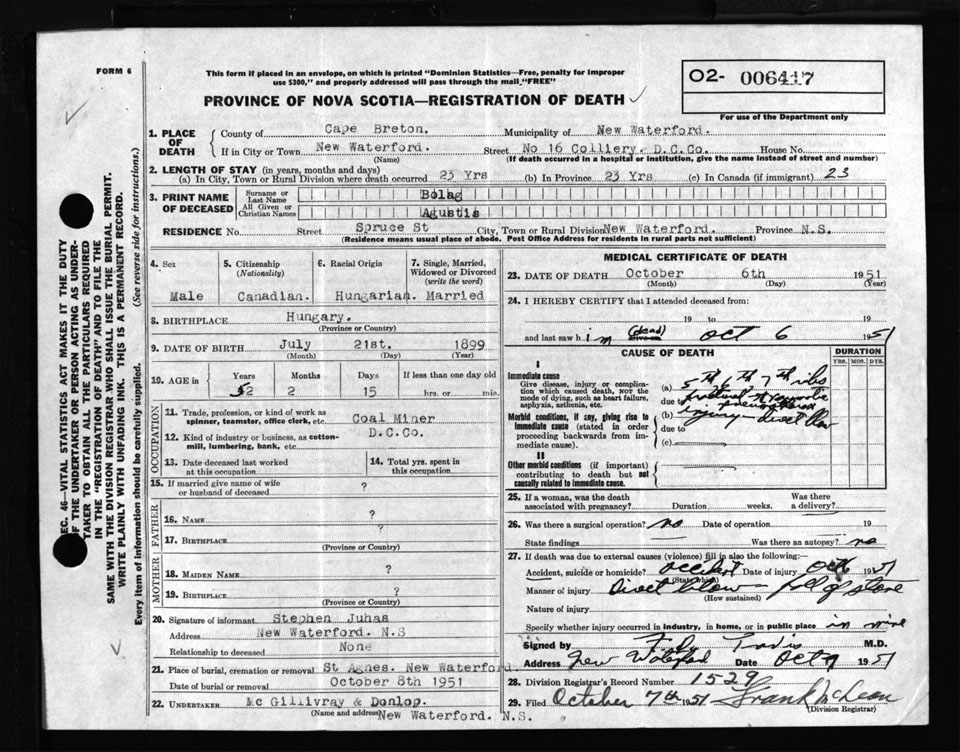 FORM 6
This form if placed in an envelope, on which is printed "Dominion Statistics—Free, penalty for improper
use $300," and properly addressed will pass through the mail "FREE"
O2- 006417
For use of the Department only
PROVINCE OF NOVA SCOTIA—REGISTRATION OF DEATH
1. PLACE OF DEATH County of Cape Breton. Municipality of New Waterford.
If in City or Town New Waterford. Street No 16 Colliery. D.C.Co. House No.
(Name) (If death occurred in a hospital or institution, give the name instead of street and number)
2. LENGTH OF STAY (in years, months and days)
(a) In City, Town or Rural Division where death occurred 23 Yrs (b) In Province 23 Yrs (c) In Canada (if immigrant) 23
3. PRINT NAME OF DECEASED Surname or Last Name Bolag
All Given or Christian Names Agustis
RESIDENCE No. Street Spruce St City, Town or Rural Division New Waterford. Province N.S.
(Residence means usual place of abode. Post Office Address for residents in rural parts not sufficient)
4. Sex Male
5. Citizenship (Nationality) Canadian.
6. Racial Origin Hungarian.
7. Single, Married, Widowed or Divorced (write the word) Married
8. BIRTHPLACE Hungary.
(Province or Country)
9. DATE OF BIRTH July 21st. 1899
(Month) (Day) (Year)
10. AGE in Years 52 Months 2 Days 15 If less than one day old hrs. or min.
OCCUPATION
11. Trade, profession, or kind of work as spinner, teamster, office clerk, etc. Coal Miner
12. Kind of industry or business, as cotton-mill, lumbering, bank, etc. D.C.Co.
13. Date deceased last worked at this occupation
14. Total yrs. spent in this occupation
15. If married give name of wife or husband of deceased ?
FATHER
16. NAME ?
17. BIRTHPLACE ?
(Province or Country)
MOTHER
18. MAIDEN NAME ?
19. BIRTHPLACE ?
(Province or Country)
20. Signature of informant Stephen Juhas
Address New Waterford. N.S
Relationship to deceased None
21. Place of burial, cremation or removal St Agnes. New Waterford.
Date of burial or removal October 8th 1951
22. UNDERTAKER Mc Gillivray & Donlop.
(Name and address) New Waterford. N.S.
MEDICAL CERTIFICATE OF DEATH
23. DATE OF DEATH October 6th 1951
(Month) (Day) (Year)
24. I HEREBY CERTIFY that I attended deceased from:
19 to 19
and last saw h im (dead) Oct 6 1951
CAUSE OF DEATH
DURATION
YRS. MOS. DYS.
I
Immediate cause
Give disease, injury or complication which caused death, NOT the mode of dying, such as heart failure, asphyxia, asthenia, etc.
(a) 5th 6th 7th ribs
fractured
due to
Morbid conditions, if any, giving rise to immediate cause (stated in order proceeding backwards from immediate cause).
(b) injury - direct blow
due to
(c)
II
Other morbid conditions (if important) contributing to death but not causally related to immediate cause.
25. If a woman, was the death associated with pregnancy? Duration weeks. Was there a delivery?
26. Was there a surgical operation? no Date of operation 19
State findings Was there an autopsy? no
27. If death was due to external causes (violence) fill in also the following:—
Accident, suicide or homicide? accident Date of injury Oct 6 1951
(State which)
Manner of injury Direct blow - fall of stone
(How sustained)
Nature of injury
Specify whether injury occurred in industry, in home, or in public place in mine
Signed by M.D.
Address New Waterford Date Oct 7 1951
28. Division Registrar's Record Number 1529
29. Filed October 7th 1951 Frank McLean
(Division Registrar)
SEC. 46—VITAL STATISTICS ACT MAKES IT THE DUTY
OF THE UNDERTAKER OR PERSON ACTING AS UNDERTAKER TO OBTAIN ALL THE PARTICULARS REQUIRED
IN THE "REGISTRATION OF DEATH" AND TO FILE THE
SAME WITH THE DIVISION REGISTRAR WHO SHALL ISSUE THE BURIAL PERMIT.
WRITE PLAINLY WITH UNFADING INK. THIS IS A PERMANENT RECORD.
Every item of information should be carefully supplied. (See reverse side for instructions.)